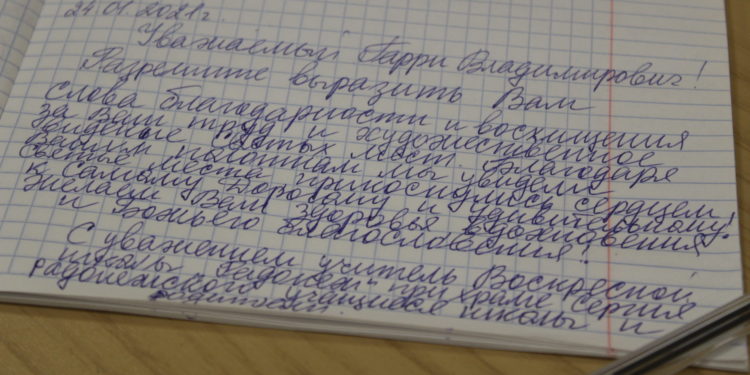 24.01.2021г.
Уважаемый Гарри Владимирович!
Разрешите выразить Вам
слова благодарности и восхищения
за Ваш труд и художественное
видение святых мест. Благодаря
Вашим полотнам мы увидели
святые места прикоснулись сердцем
к самому Дорогому и удивительному!
Желаем Вам здоровья вдохновения
и Божьего благословения!
С уважением учитель Воскресной
школы "Радонеж" при храме Сергия
Радонежского учащиеся школы и
родители.